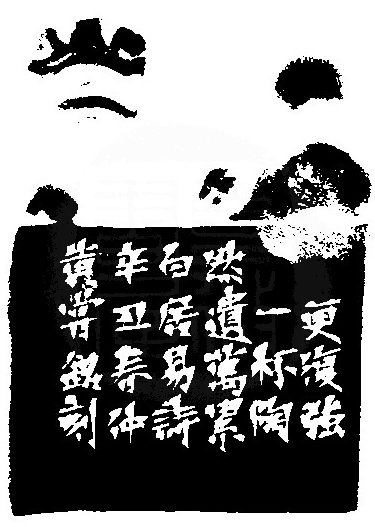 更復強
一杯陶
然遺萬累
白居易詩
辛丑春仲
黃嘗銘刻